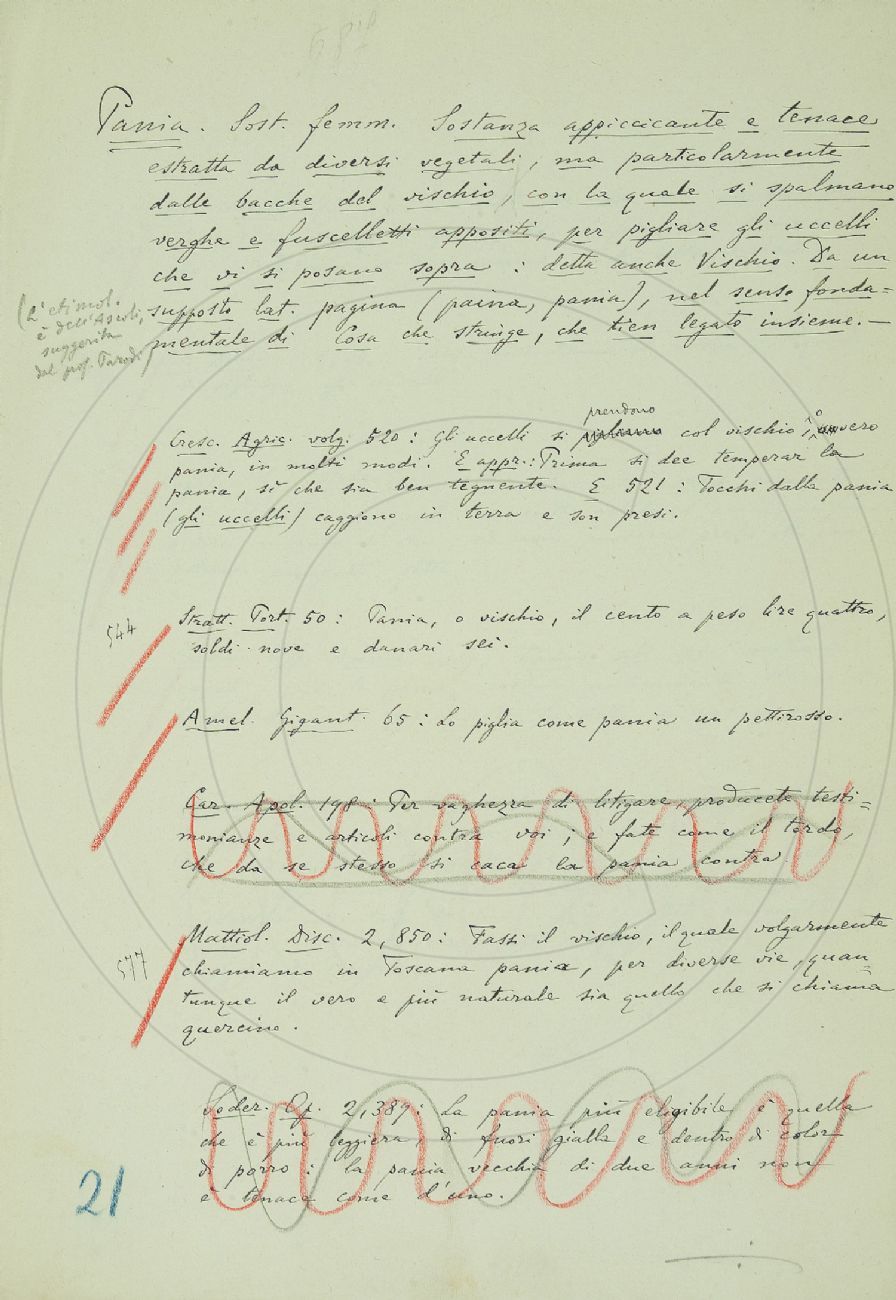 687
Pania. Sost. femm. Sostanza appiccicante e tenace
estratta da diversi vegetali, ma particolarmente
dalle bacche del vischio, con la quale si spalmano
verghe e fuscelletti appositi, per pigliare gli uccelli
che vi si posano sopra : detta anche Vischio. Da un
supposto lat. pagina (paina, pania), nel senso fonda=
mentale di Cosa che stringe, che tien legato insieme. —
(L'etimol.
è dell'Ascoli,
suggerita
dal prof. Parodi)
Cresc. Agric. volg. 520 : Gli uccelli si prendono col vischio, ovvero
pania, in molti modi. E appr.: Prima si dee temperar la
pania, sì che sia ben tegnente. E 521 : Tocchi dalla pania
(gli uccelli) caggiono in terra e son presi.
544
Stratt. Port. 50 : Pania, o vischio, il cento a peso lire quattro,
soldi nove e danari sei.
Amel. Gigant. 65 : Lo piglia come pania un pettirosso.
Car. Apol. 198 : Per vaghezza di litigare, producete testi=
monianze e articoli contra voi ; e fate come il tordo,
che da se stesso si caca la pania contra
577
Mattiol. Disc. 2, 850 : Fassi il vischio, il quale volgarmente
chiamiamo in Toscana pania, per diverse vie, quan=
tunque il vero e più naturale sia quello che si chiama
quercino.
Soder. Op. 2, 389 : La pania più eligibile è quella
che è più leggiera, di fuori gialla e dentro di color
di porro : la pania vecchia di due anni non
è tenace come d'uno.
21